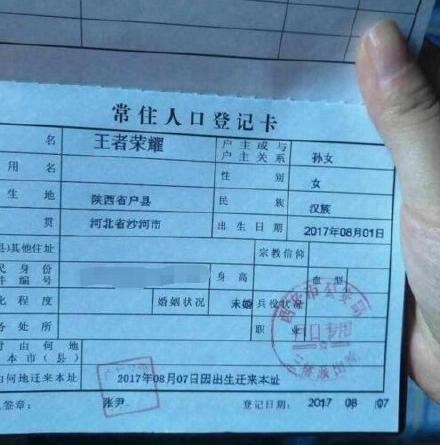 常住人口登记卡
名 王者荣耀 户主或与户主关系 孙女
用名 性别 女
生地 陕西省户县 民族 汉族
贯 河北省沙河市 出生日期 2017年08月01日
县)其他住址 宗教信仰
民身份件编号 身高 血型
化程度 婚姻状况 未婚 兵役状况
务处所 职业
何地本市(县)
何地迁来本址 2017年08月07日因出生迁来本址
人签章： 张尹 登记日期： 2017 08 07